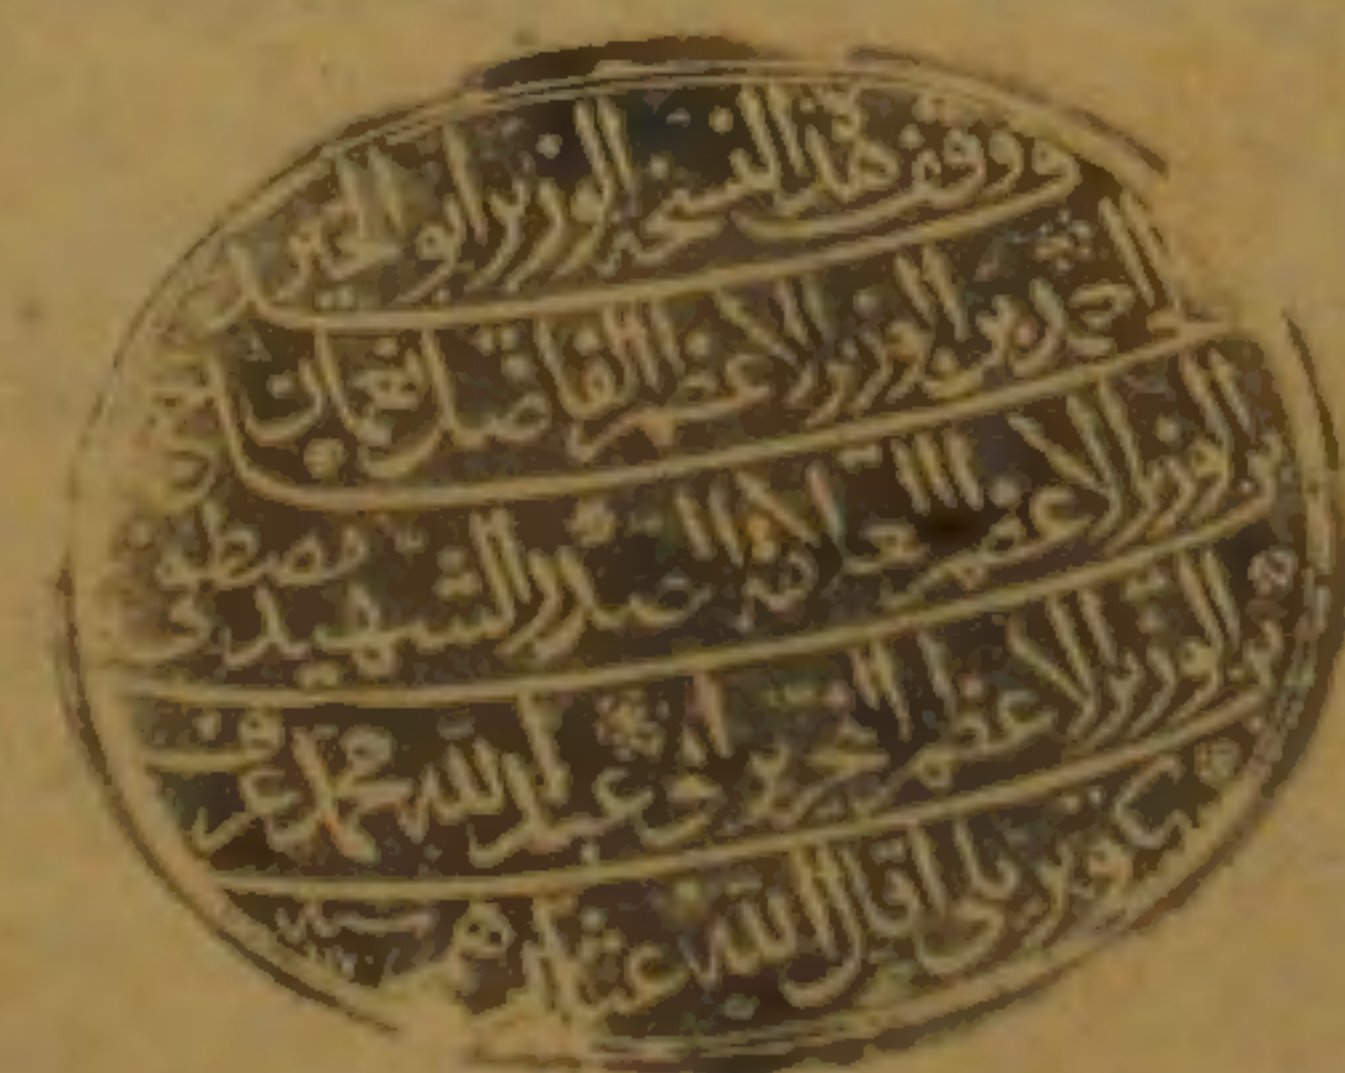 ووقف هذا النسخة الوزير ابو الخير
احمد بن الوزير الاعظم الفاضل نعمان
بن الوزير الاعظم صدر الشهيد مصطفى
بن الوزير الاعظم ابى عبد الله محمد عرف
كوپريلى اقال الله عثارهم